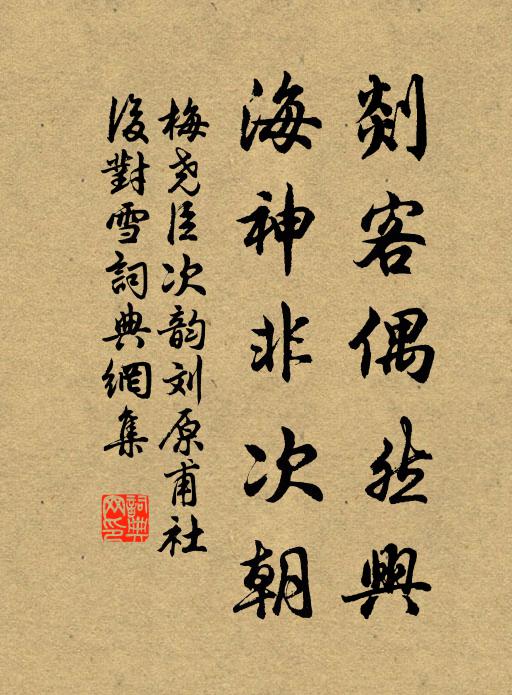 剡客偶然興
海神非次朝
梅尧臣次韵刘原甫社
後對雪詞典網集
詞典網印